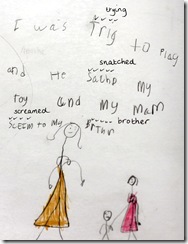 trying
I was Trig to Play
snatched
and He Sachd my
toy and my mam
screamed
Sceem to My Brthr
brother